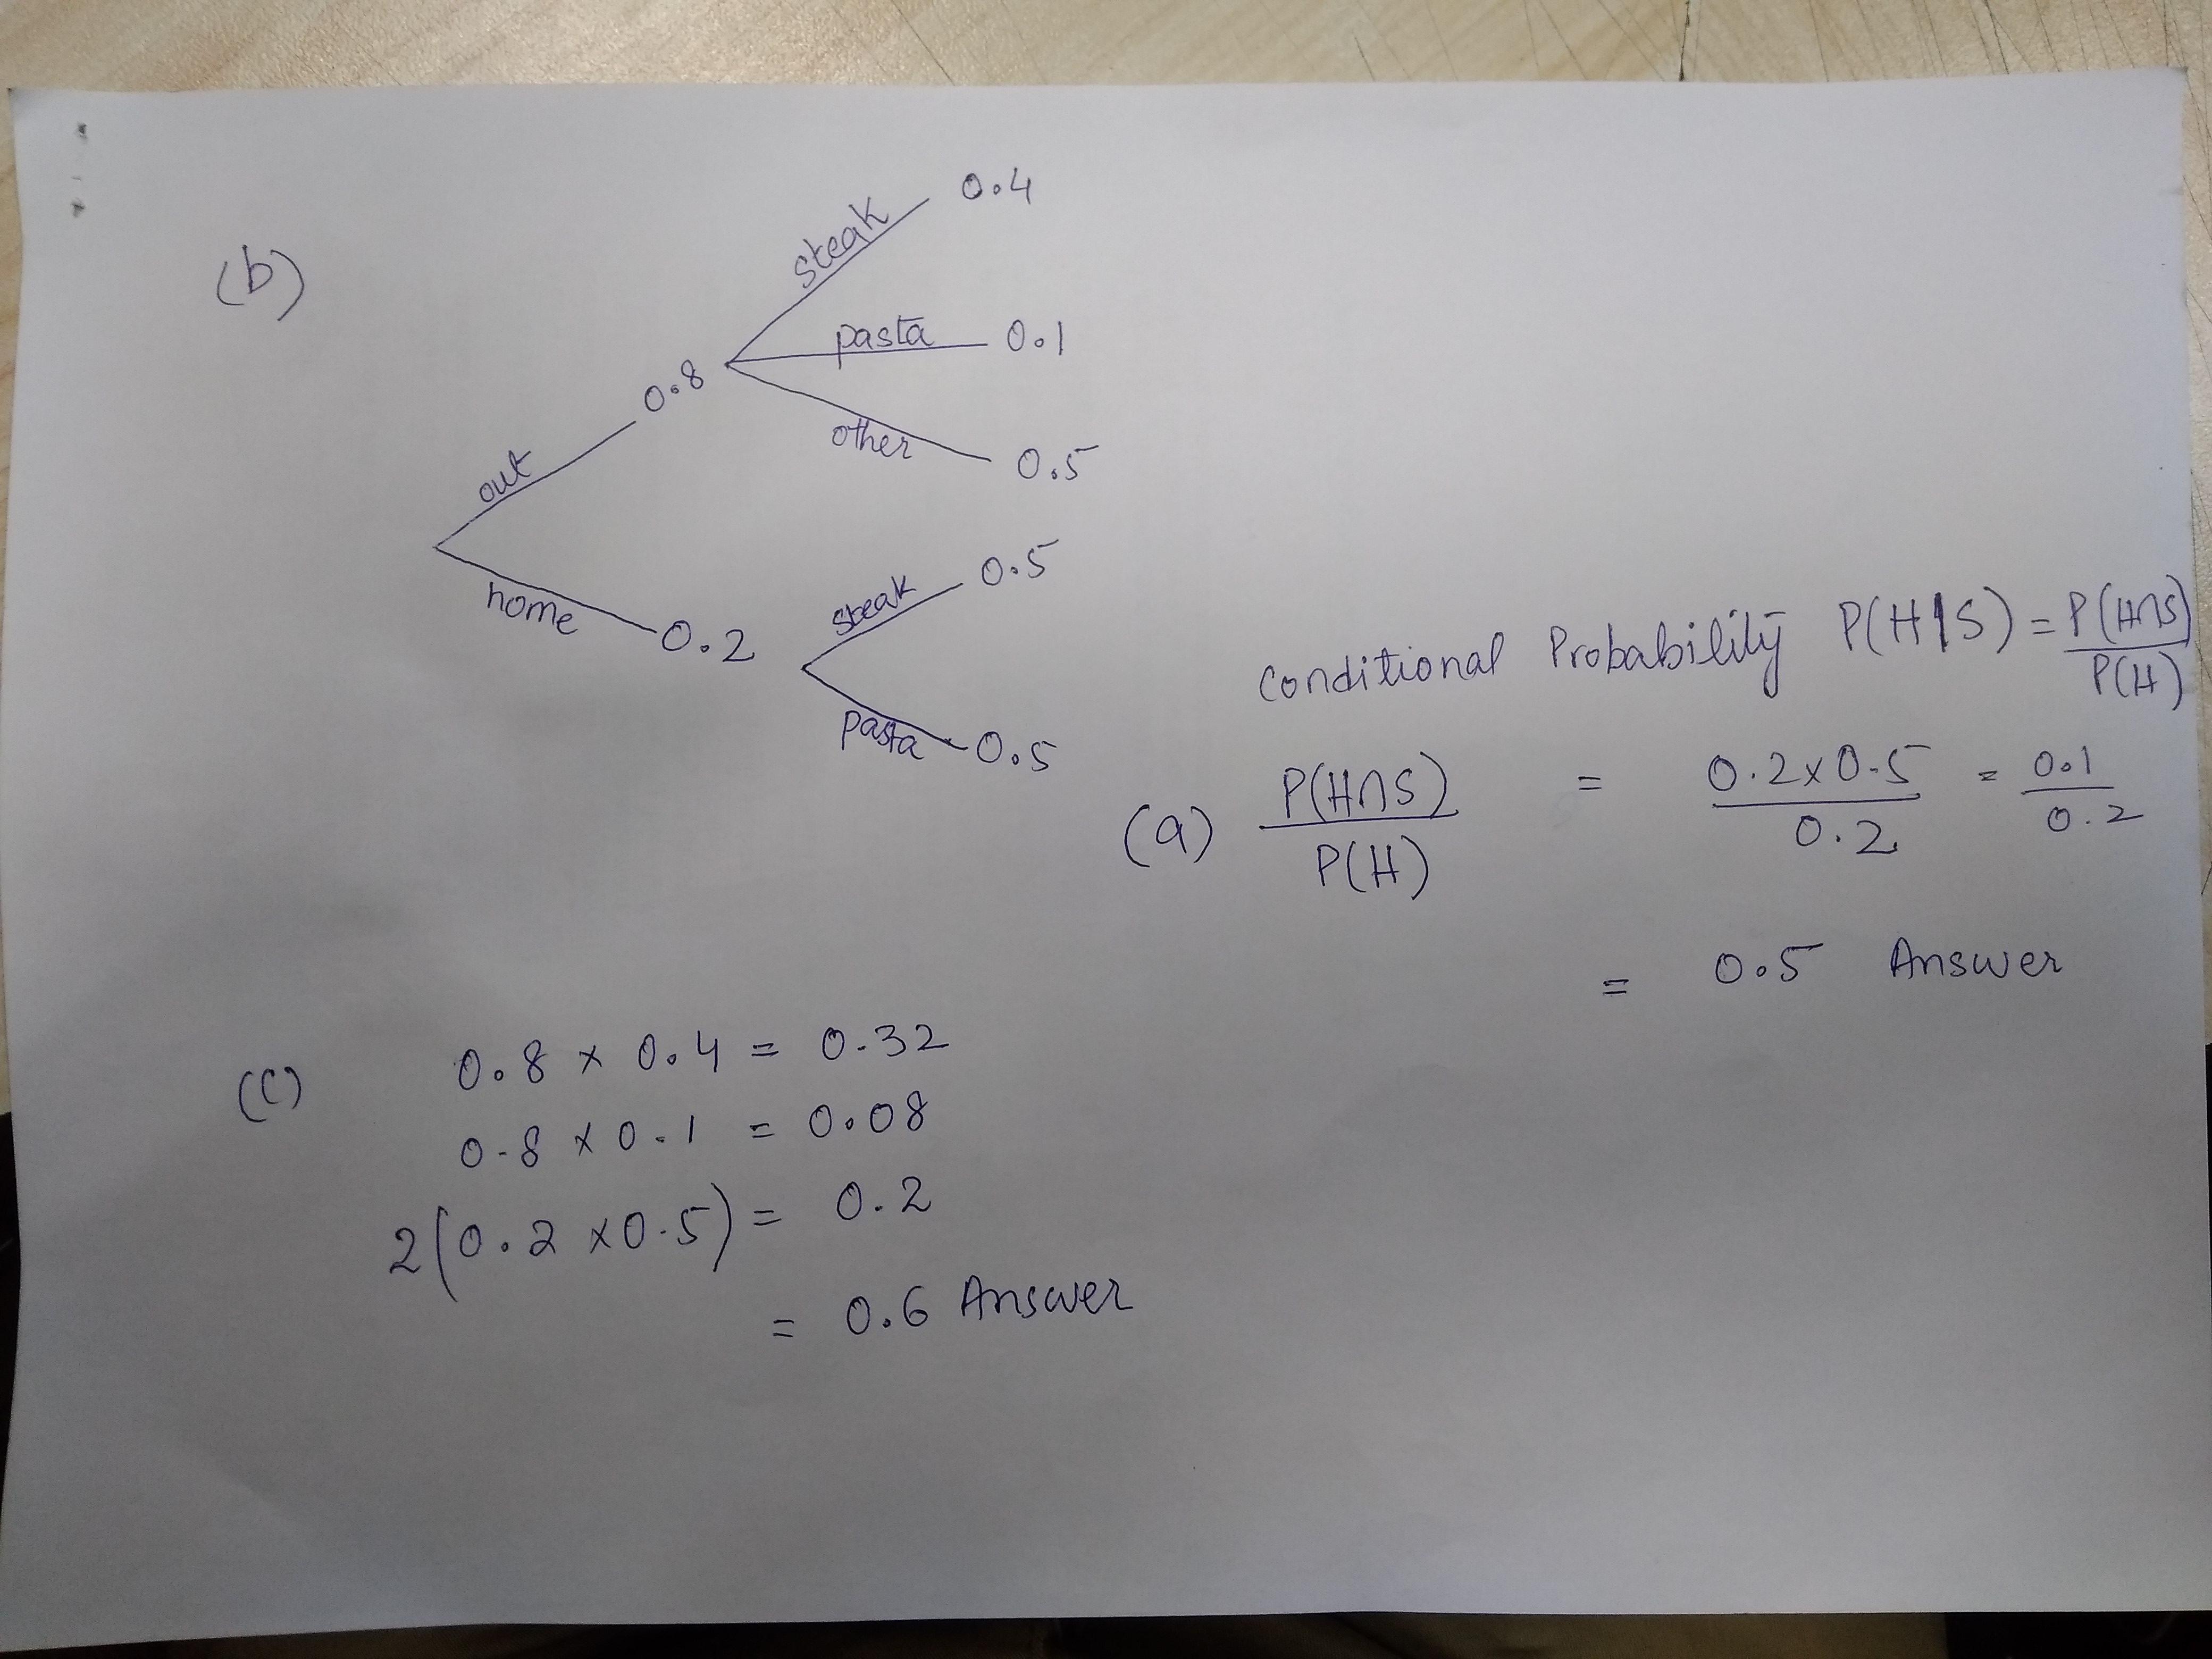 (b)
steak 0.4
pasta 0.1
other 0.5
out 0.8
home 0.2
steak 0.5
pasta 0.5
Conditional Probability P(H|S) = P(H∩S) / P(H)
(a) P(H∩S) / P(H) = 0.2 x 0.5 / 0.2 = 0.1 / 0.2
= 0.5 Answer
(c) 0.8 x 0.4 = 0.32
0.8 x 0.1 = 0.08
2(0.2 x 0.5) = 0.2
= 0.6 Answer